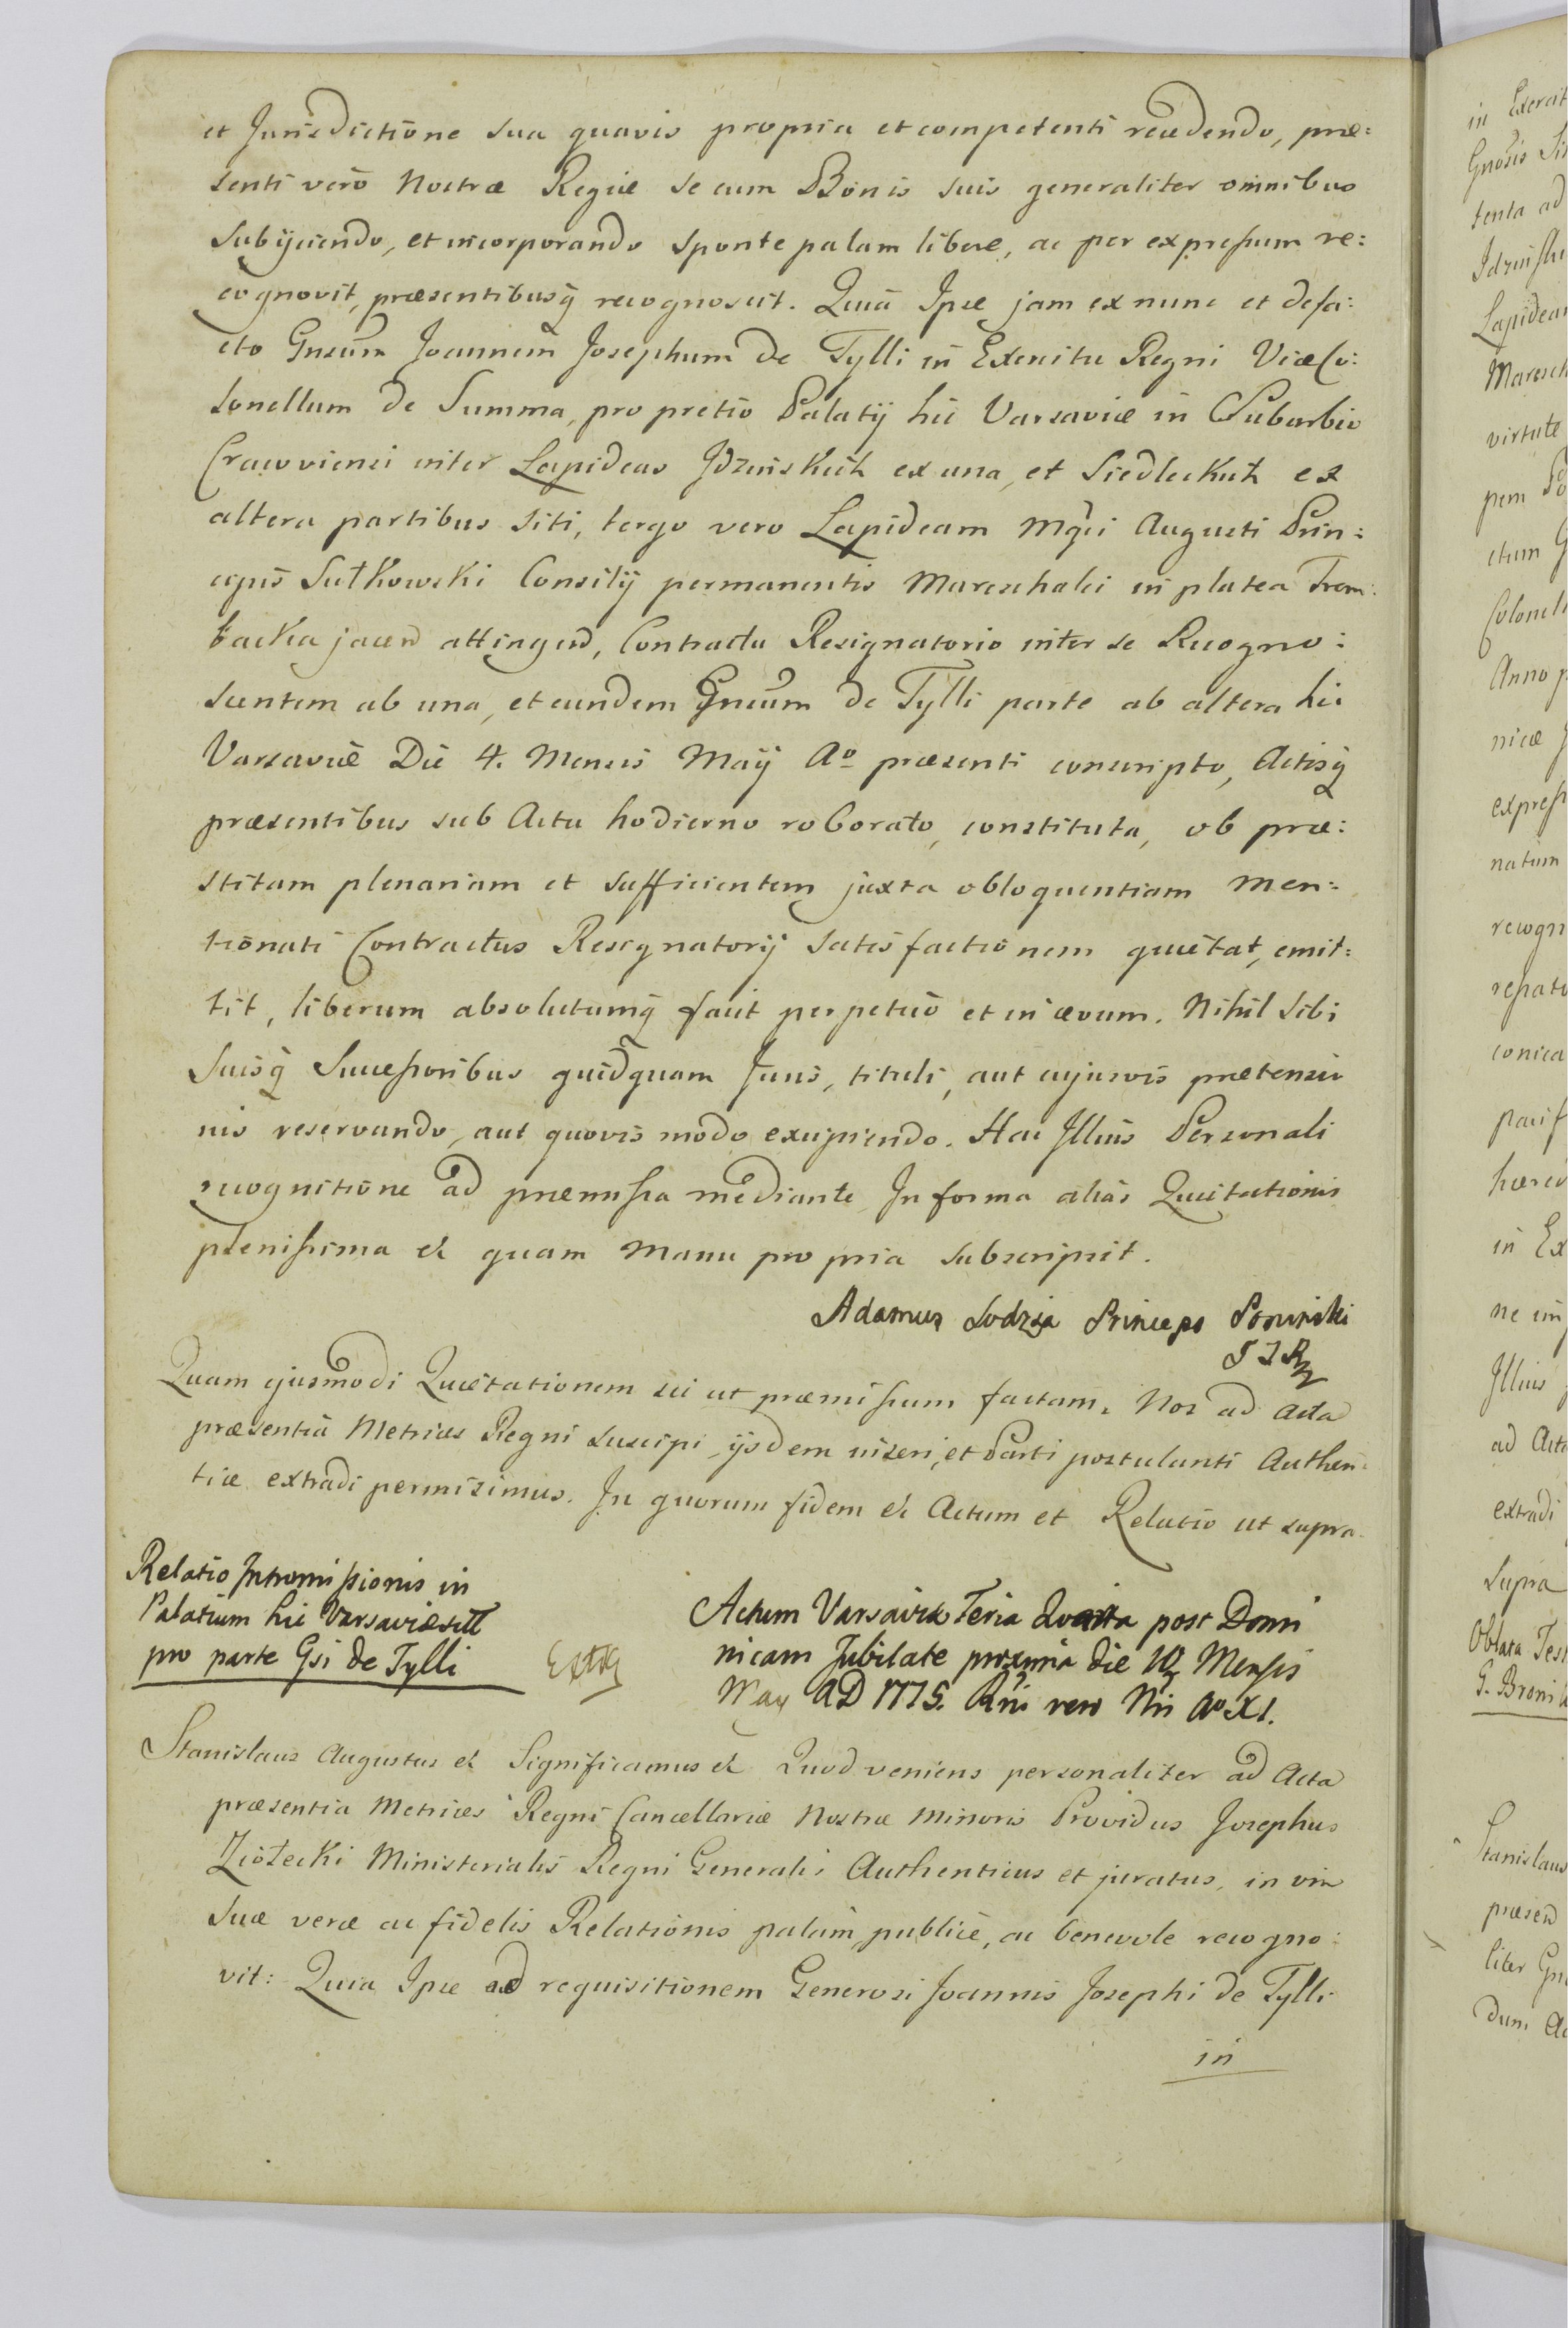 et Jurisdictione sua quavis propria et competenti recedendo, præ:
senti vero Nostræ Regiæ se cum Bonis suis generaliter omnibus
subijciendo, et incorporando sponte palam libere, ac per expressum re:
cognovit, præsentibusq recognoscit. Quia Ipse jam ex nunc et defa:
cto Gnsum Joannem Josephum de Tylli in Exercitu Regni ViceCo:
lonellum de Summa, pro pretio Palatij hic Varsaviæ in Suburbio
Cracoviensi inter Lapideas Idzinskich ex una, et Siedleckich ex
altera partibus siti, tergo vero Lapideam Mgci Augusti Prin:
cipis Sułkowski Consilij permanentis Mareschalci in platea Trem:
backa jacen attingen, Contractu Resignatorio inter se Recogno:
scentem ab una, et eundem Gnsum de Tylli parte ab altera hic
Varsaviæ Die 4. Mensis Maij Ao præsenti conscripto, Actisq
præsentibus sub Actu hodierno roborato, constituta, ob præ:
stitam plenariam et sufficientem juxta obloquentiam men:
tionati Contractus Resignatorij satisfactionem quietat, emit:
tit, liberum absolutumq facit perpetuo et in ævum. Nihil sibi
suisq Successoribus quidquam Juris, tituli, aut cujusvis prætensio
nis reservando, aut quovis modo excipiendo. Hac Illius Personali
recognitione ad præmissa mediante In forma alias Quietationis
plenissima et quam Manu propria subscripsit.
Adamus Lodzia Princeps Poninski
Quam ejusmodi Quietationem sic ut præmissum factam, Nos ad Acta
præsentia Metrices Regni suscipi, ijsdem inseri, et Parti postulanti Authen:
tice extradi permisimus. In quorum fidem et Actum et Relatio ut supra.
Relatio Intromissionis in
Palatium hic Varsaviæ sitt
pro parte Gsi de Tylli
Actum Varsaviæ Feria Quarta post Domi
nicam Jubilate proxima die 10 Mensis
May AD 1775. Rni vero Nri Ao XI.
Stanislaus Augustus et Significamus et Quod veniens personaliter ad Acta
præsentia Metrices Regni Cancellariæ Nostræ Minoris Providus Josephus
Ziółecki Ministerialis Regni Generalis Authenticus et juratus, in vim
suæ veræ ac fidelis Relationis palam publice, ac benevole recogno:
vit: Quia Ipse ad requisitionem Generosi Joannis Josephi de Tylli
in